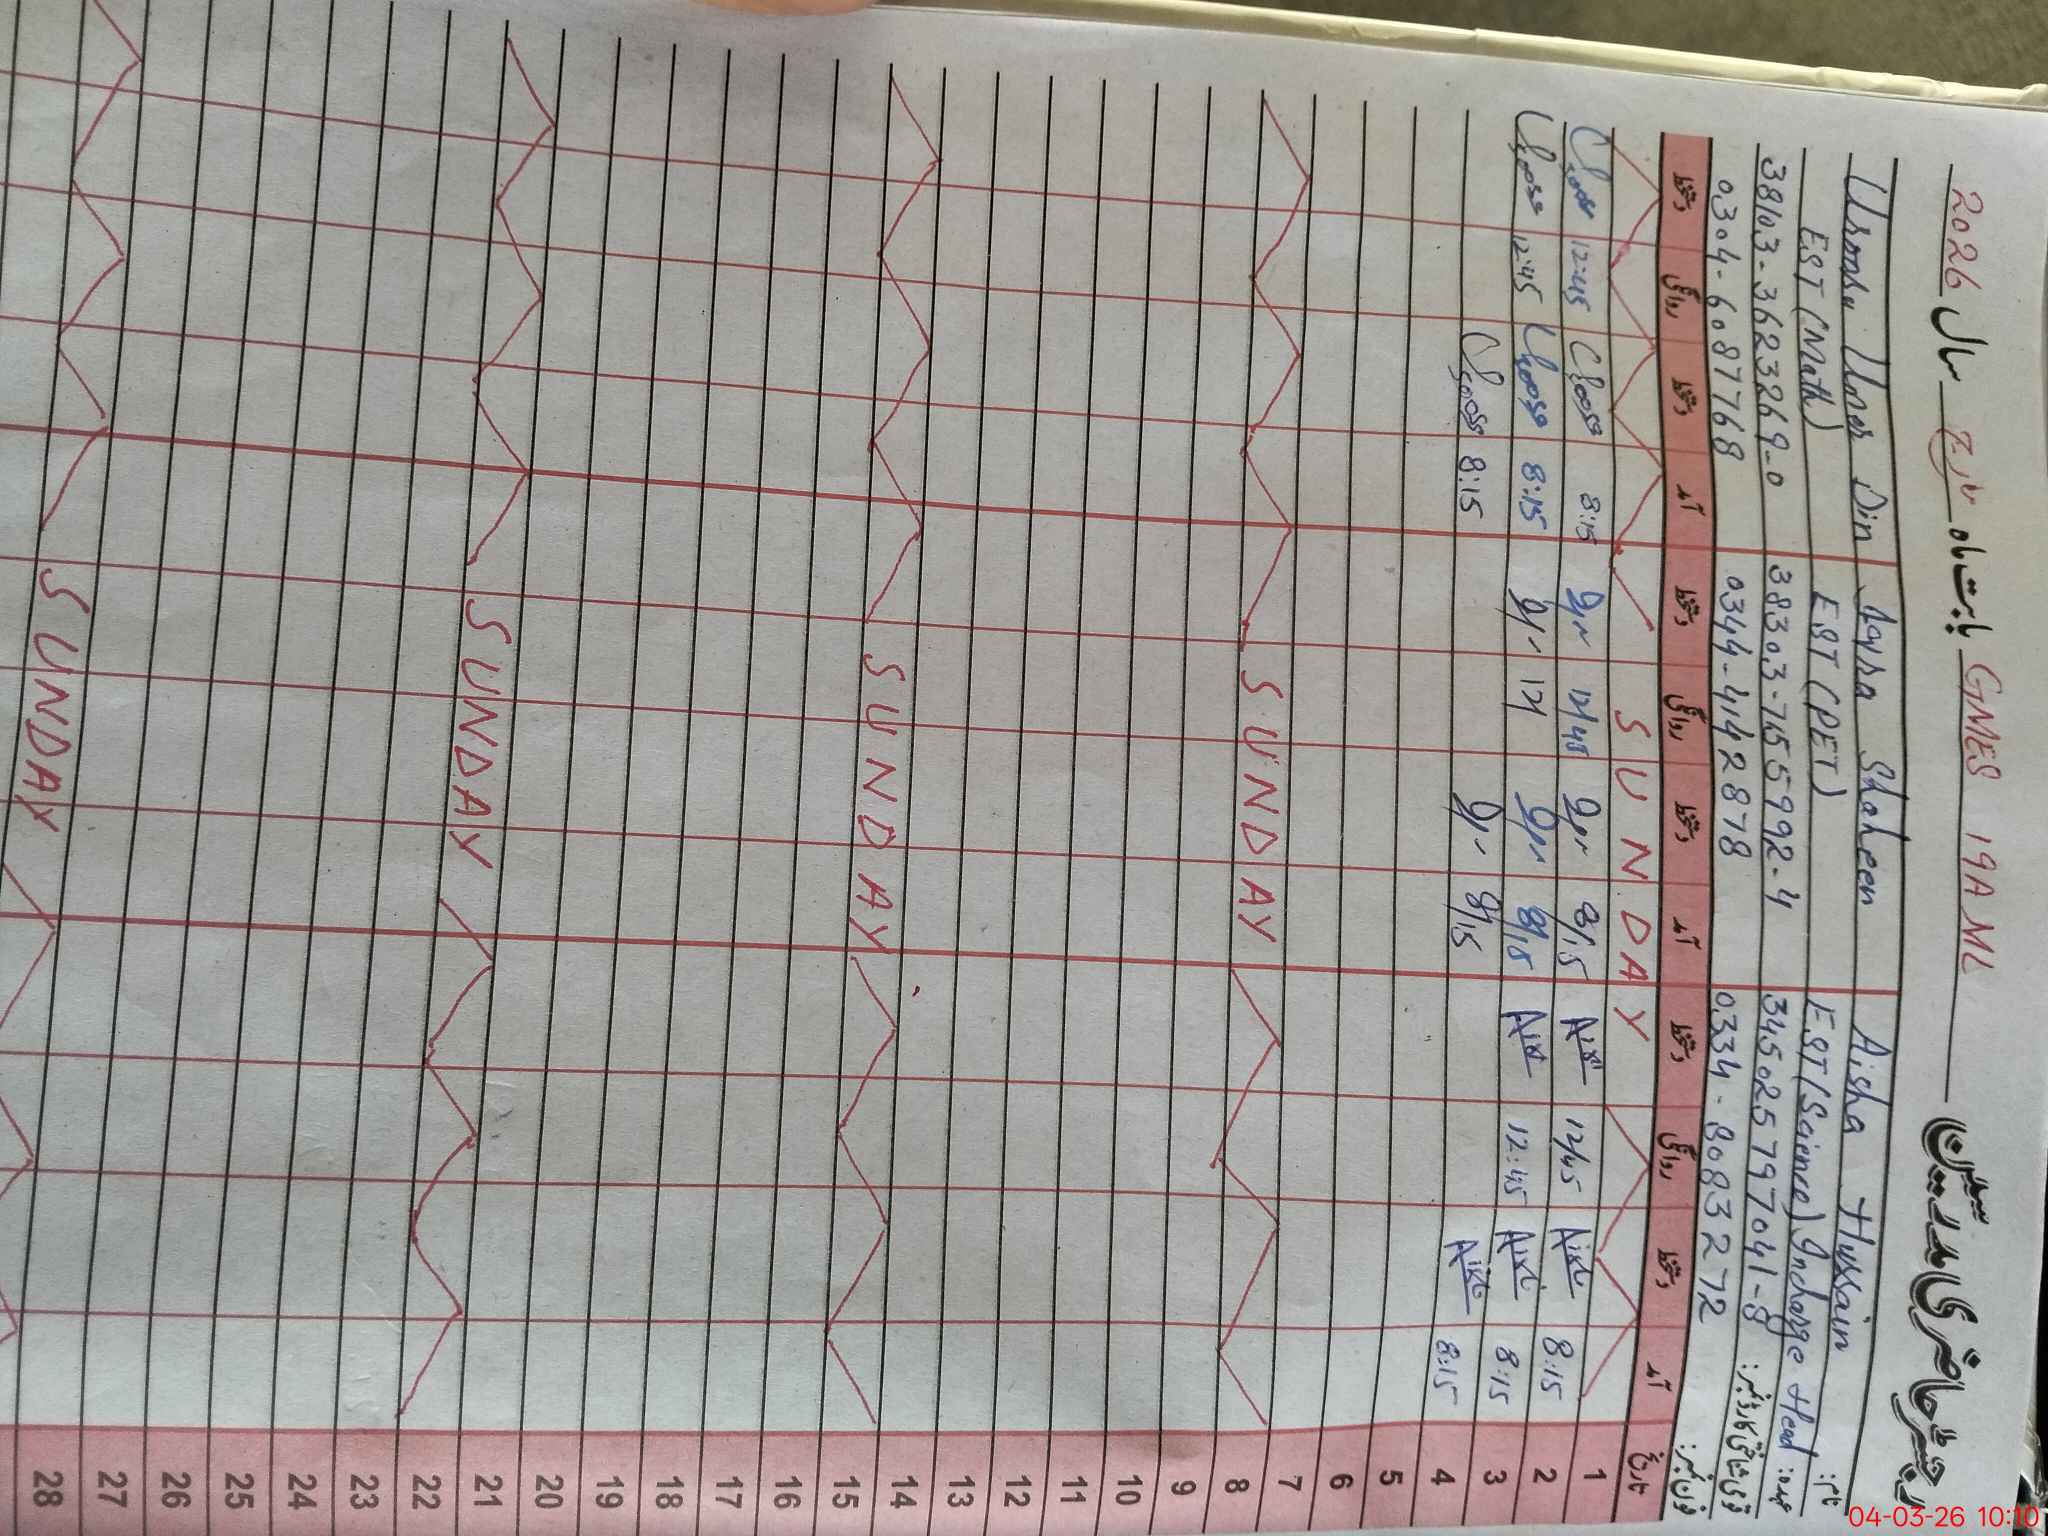 رجسٹر حاضری مدرسین بابت ماہ مارچ سال 2026
GMES 19A ML
نام: Aisha Hussain Aqsa Shaheen Usama Umer Din
عہدہ: EST (Science) Incharge Head EST (PET) EST (Math)
قومی شناختی کارڈ نمبر: 345025797041-8 38303-7455992-4 38103-3623269-0
فون نمبر: 0334-8083272 0344-4142878 0304-6087768
تاریخ آمد دستخط روانگی دستخط آمد دستخط روانگی دستخط آمد دستخط روانگی دستخط
1 SUNDAY
2 8:15 12/45 8/15 12/45 8:15 12:45
3 8:15 12:45 8/15 8:15 12:45
4 8:15 8/15 8:15
5
6
7
8 SUNDAY
9
10
11
12
13
14
15 SUNDAY
16
17
18
19
20
21
22 SUNDAY
23
24
25
26
27
28
SUNDAY
04-03-26 10:10